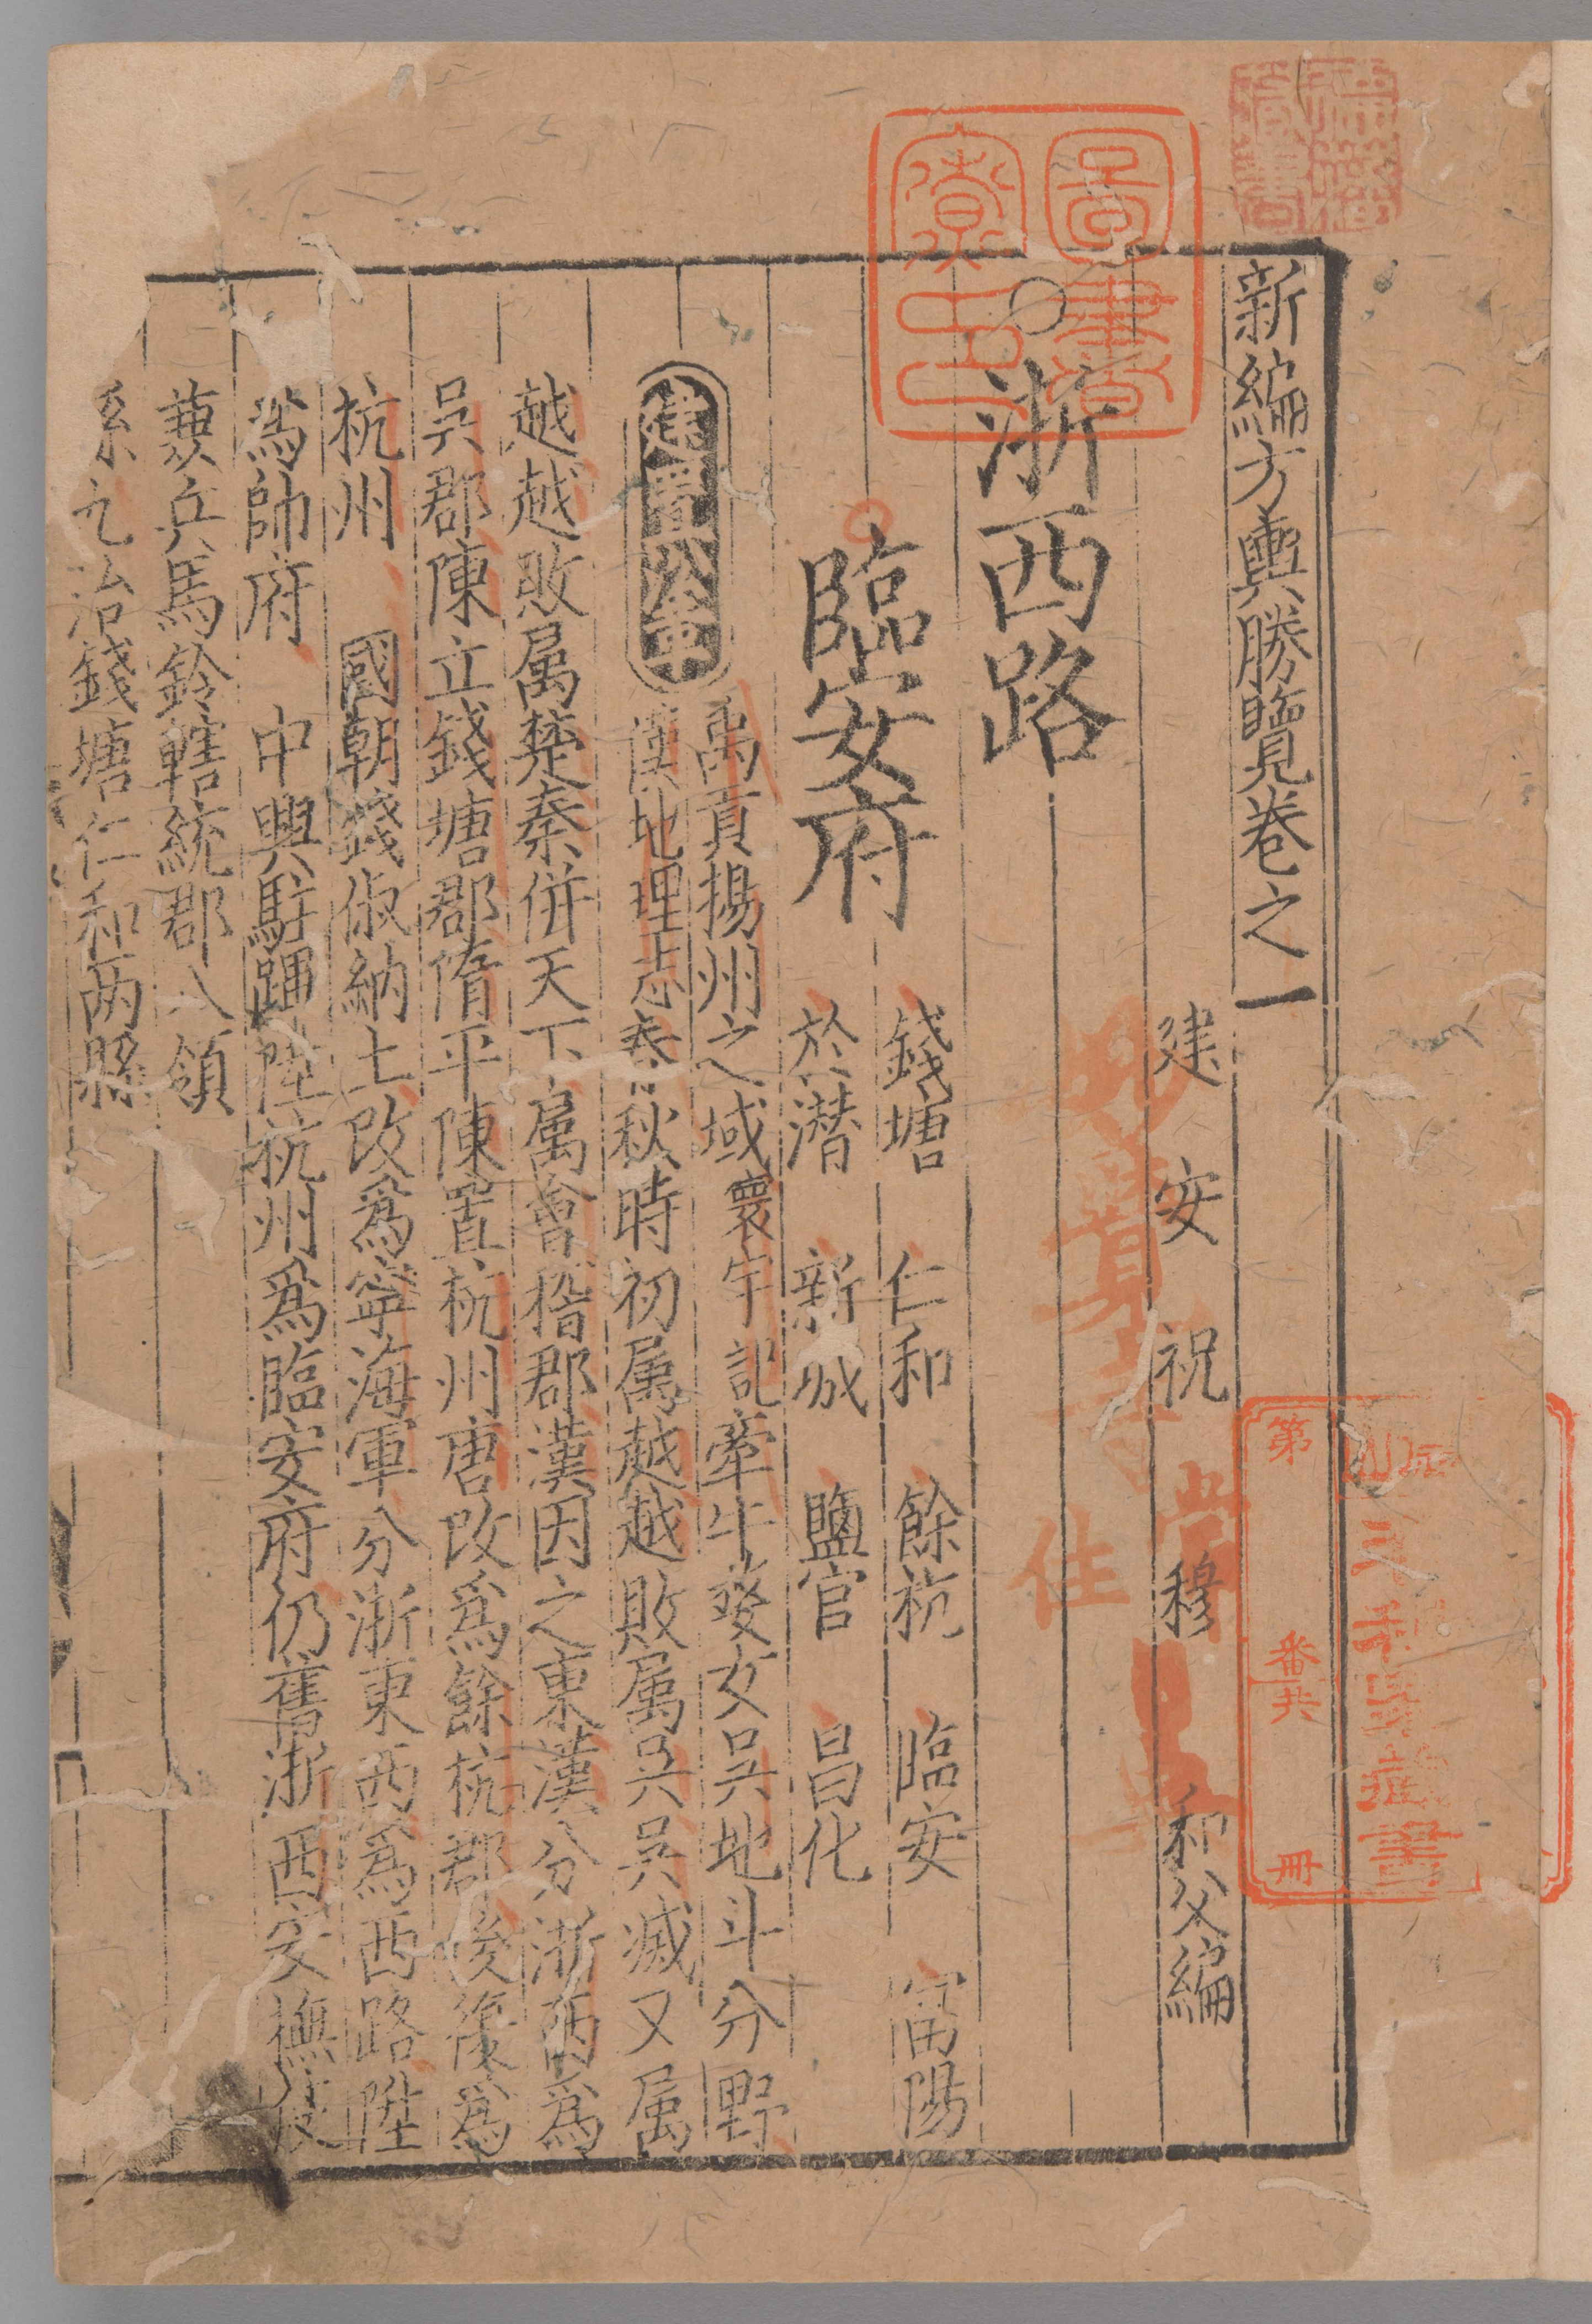 新編方輿勝覽卷之一
建安祝穆和父編
浙西路
臨安府
錢塘 仁和 餘杭 臨安 富陽
於潛 新城 鹽官 昌化
建置沿革
禹貢揚州之域寰宇記牽牛婺女吳地斗分野
漢地理志春秋時初属越越敗属吳吳滅又属
越越敗属楚秦併天下属會稽郡漢因之東漢分浙西爲
吳郡陳立錢塘郡隋平陳置杭州唐改爲餘杭郡後復爲
杭州 國朝錢俶納土改爲寧海軍分浙東西爲西路陞
爲帥府 中興駐蹕陞杭州爲臨安府仍舊浙西安撫使
兼兵馬鈐轄統郡八領
縣九治錢塘仁和兩縣
圖書寮印
第
番共
冊
常住